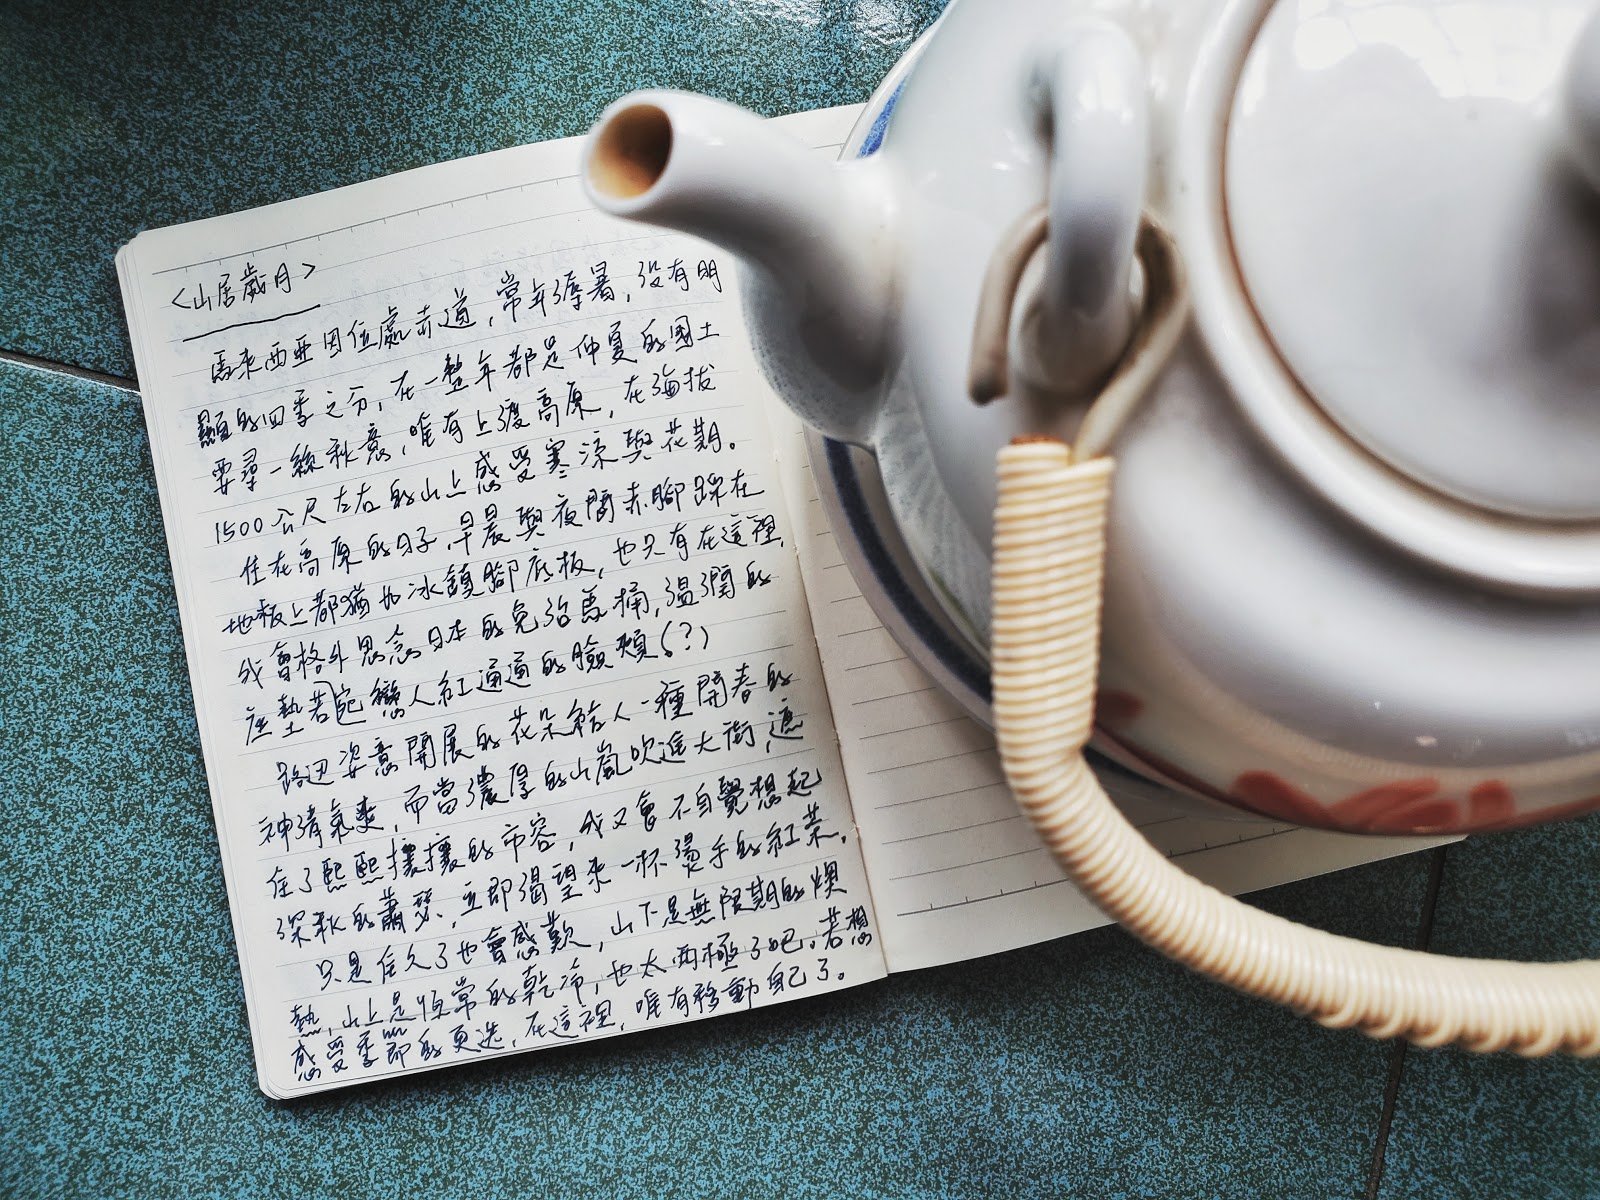 <山居歲月>
馬來西亞因位處赤道，常年溽暑，沒有明
顯的四季之分，在一整年都是仲夏的國土
要尋一絲秋意，唯有上渡高原，在海拔
1500公尺左右的山上感受寒涼與花期。
住在高原的日子，早晨與夜間赤腳踩在
地板上都猶如冰鎮腳底板，也只有在這裡，
我會格外思念日本的免治馬桶，溫潤的
座墊若戀人紅通通的臉頰(?)
路边姿意開展的花朵給人一種開春的
神清氣爽，而當濃厚的山嵐吹進大街，遮
住了熙熙攘攘的市容，我又會不自覺想起
深秋的蕭瑟，立即渴望來一杯燙手的紅茶。
只是住久了也會感歎，山下是無限期的燠
熱，山上是恆常的乾冷，也太兩極了吧。若想
感受季節的更迭，在這裡，唯有移動自己了。